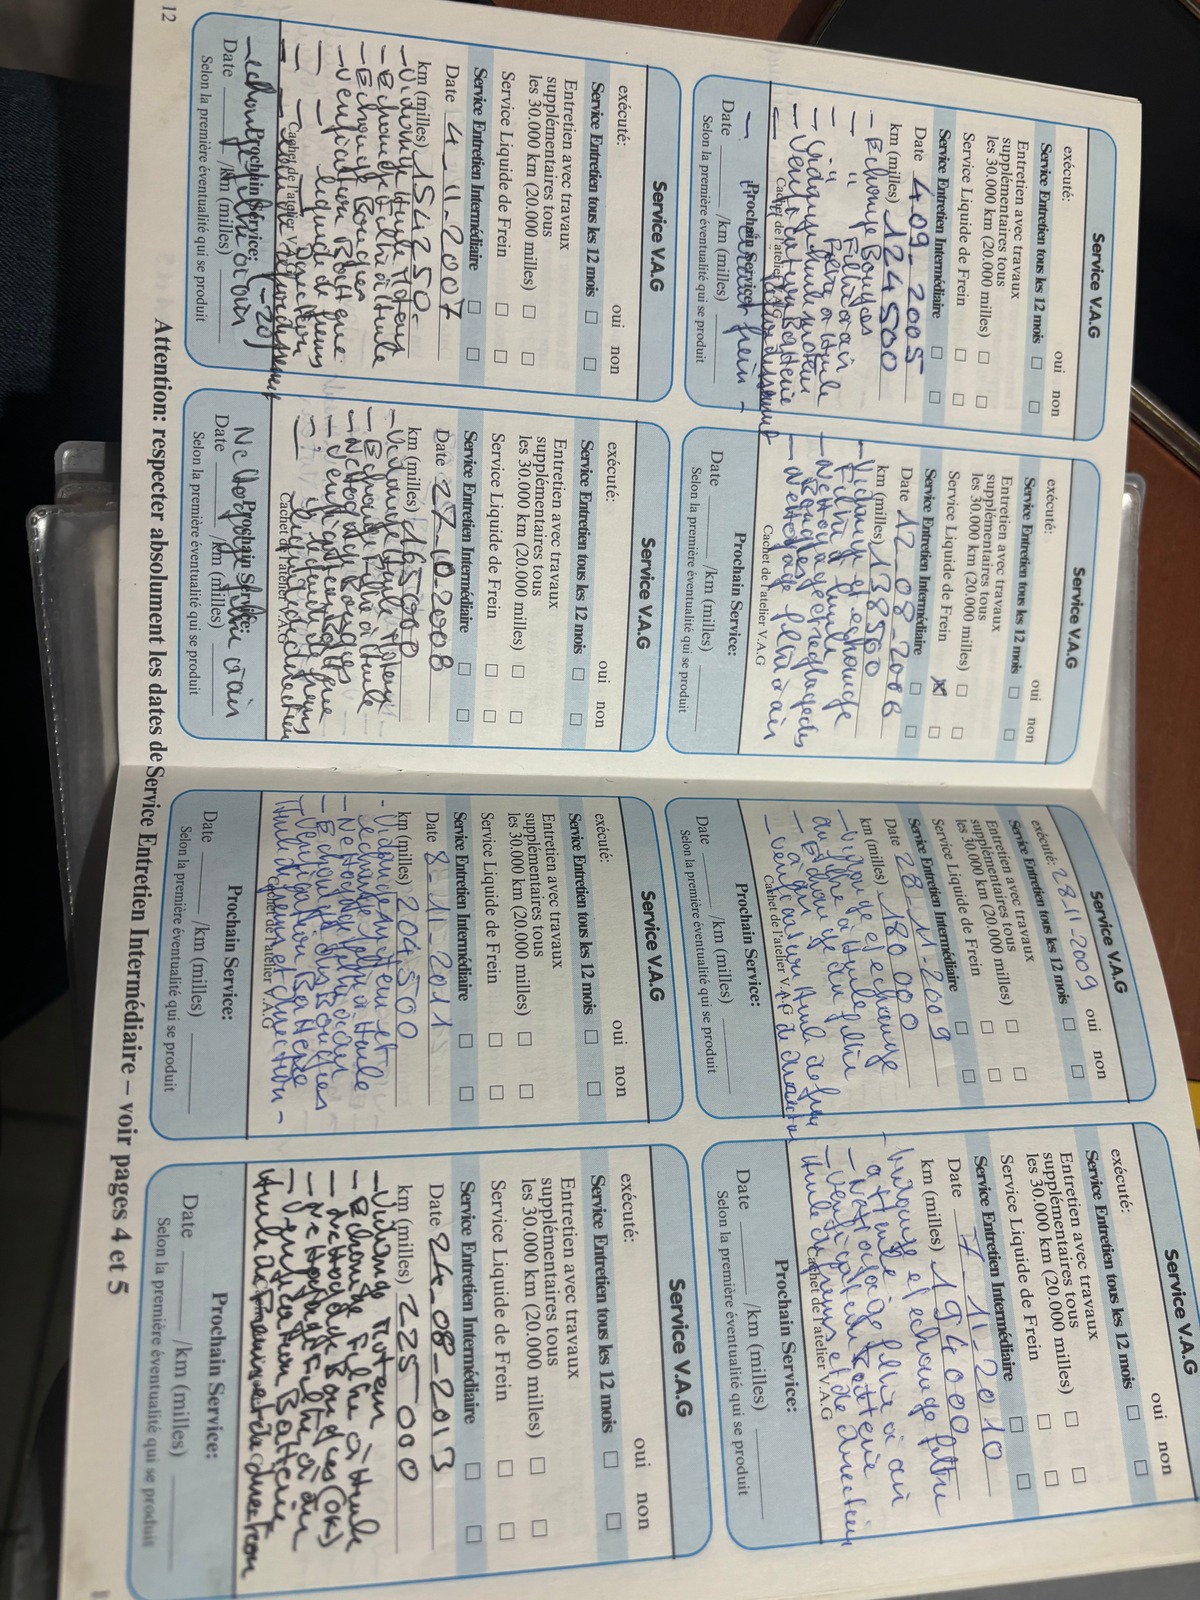 Service V.A.G
exécuté:
oui non
Service Entretien tous les 12 mois
Entretien avec travaux
supplémentaires tous
les 30.000 km (20.000 milles)
Service Liquide de Frein
Service Entretien Intermédiaire
Date 4-09-2005
km (milles) 124500
- Echange Bougies
- " Filtre à air
- " Filtre à Huile
- Vidange huile moteur
- Verification Batterie
Cachet de l'atelier V.A.G
Prochain Service:
Date /km (milles)
Selon la première éventualité qui se produit
Service V.A.G
exécuté:
oui non
Service Entretien tous les 12 mois
Entretien avec travaux
supplémentaires tous
les 30.000 km (20.000 milles)
Service Liquide de Frein
Service Entretien Intermédiaire
Date 12-08-2006
km (milles) 138500
- Vidange et echange
Filtre à huile
- Nettoyage et reglage des
Bougies
- Nettoyage filtre à air
Cachet de l'atelier V.A.G
Prochain Service:
Date /km (milles)
Selon la première éventualité qui se produit
Service V.A.G
exécuté: 28.11-2009
oui non
Service Entretien tous les 12 mois
Entretien avec travaux
supplémentaires tous
les 30.000 km (20.000 milles)
Service Liquide de Frein
Service Entretien Intermédiaire
Date 28-11-2009
km (milles) 180 000
- Vidange et echange
filtre à Huile
- Echange du filtre
à air
Cachet de l'atelier V.A.G
Prochain Service:
Date /km (milles)
Selon la première éventualité qui se produit
Service V.A.G
exécuté:
oui non
Service Entretien tous les 12 mois
Entretien avec travaux
supplémentaires tous
les 30.000 km (20.000 milles)
Service Liquide de Frein
Service Entretien Intermédiaire
Date 7-11-2010
km (milles) 194000
- Vidange et echange filtre
à Huile
- Nettoyage filtre à air
- Verification Batterie
Huile de freins et de direction
Cachet de l'atelier V.A.G
Prochain Service:
Date /km (milles)
Selon la première éventualité qui se produit
Service V.A.G
exécuté:
oui non
Service Entretien tous les 12 mois
Entretien avec travaux
supplémentaires tous
les 30.000 km (20.000 milles)
Service Liquide de Frein
Service Entretien Intermédiaire
Date 4-11-2007
km (milles) 154250-
- Vidange Huile Moteur
- Echange Filtre à Huile
- Echange Bougies
- Verification Batterie
- " liquide de freins
- " Direction
Cachet de l'atelier V.A.G
- echange filtre à air
Prochain Service:
Date /km (milles)
Selon la première éventualité qui se produit
Service V.A.G
exécuté:
oui non
Service Entretien tous les 12 mois
Entretien avec travaux
supplémentaires tous
les 30.000 km (20.000 milles)
Service Liquide de Frein
Service Entretien Intermédiaire
Date 27-10-2008
km (milles) 165000
- Vidange Huile Moteur
- Echange Filtre à Huile
- Nettoyage Bougies
- Verification Batterie
- " liquide de freins
Cachet de l'atelier V.A.G
Nettoyage filtre à air
Prochain Service:
Date /km (milles)
Selon la première éventualité qui se produit
Service V.A.G
exécuté:
oui non
Service Entretien tous les 12 mois
Entretien avec travaux
supplémentaires tous
les 30.000 km (20.000 milles)
Service Liquide de Frein
Service Entretien Intermédiaire
Date 8-11-2011
km (milles) 204,500
- Vidange Moteur et
echange filtre à Huile
- Nettoyage filtre à air
- Echange des Bougies
- Verification Batterie
Huile de freins et direction-
Cachet de l'atelier V.A.G
Prochain Service:
Date /km (milles)
Selon la première éventualité qui se produit
Service V.A.G
exécuté:
oui non
Service Entretien tous les 12 mois
Entretien avec travaux
supplémentaires tous
les 30.000 km (20.000 milles)
Service Liquide de Frein
Service Entretien Intermédiaire
Date 24-08-2013
km (milles) 225 000
- Vidange Moteur
- Echange Filtre à Huile
- Nettoyage Bougies (OK)
- Nettoyage Filtre à air
- Verification Batterie
Huile de freins et de direction
Prochain Service:
Date /km (milles)
Selon la première éventualité qui se produit
12
Attention: respecter absolument les dates de Service Entretien Intermédiaire – voir pages 4 et 5